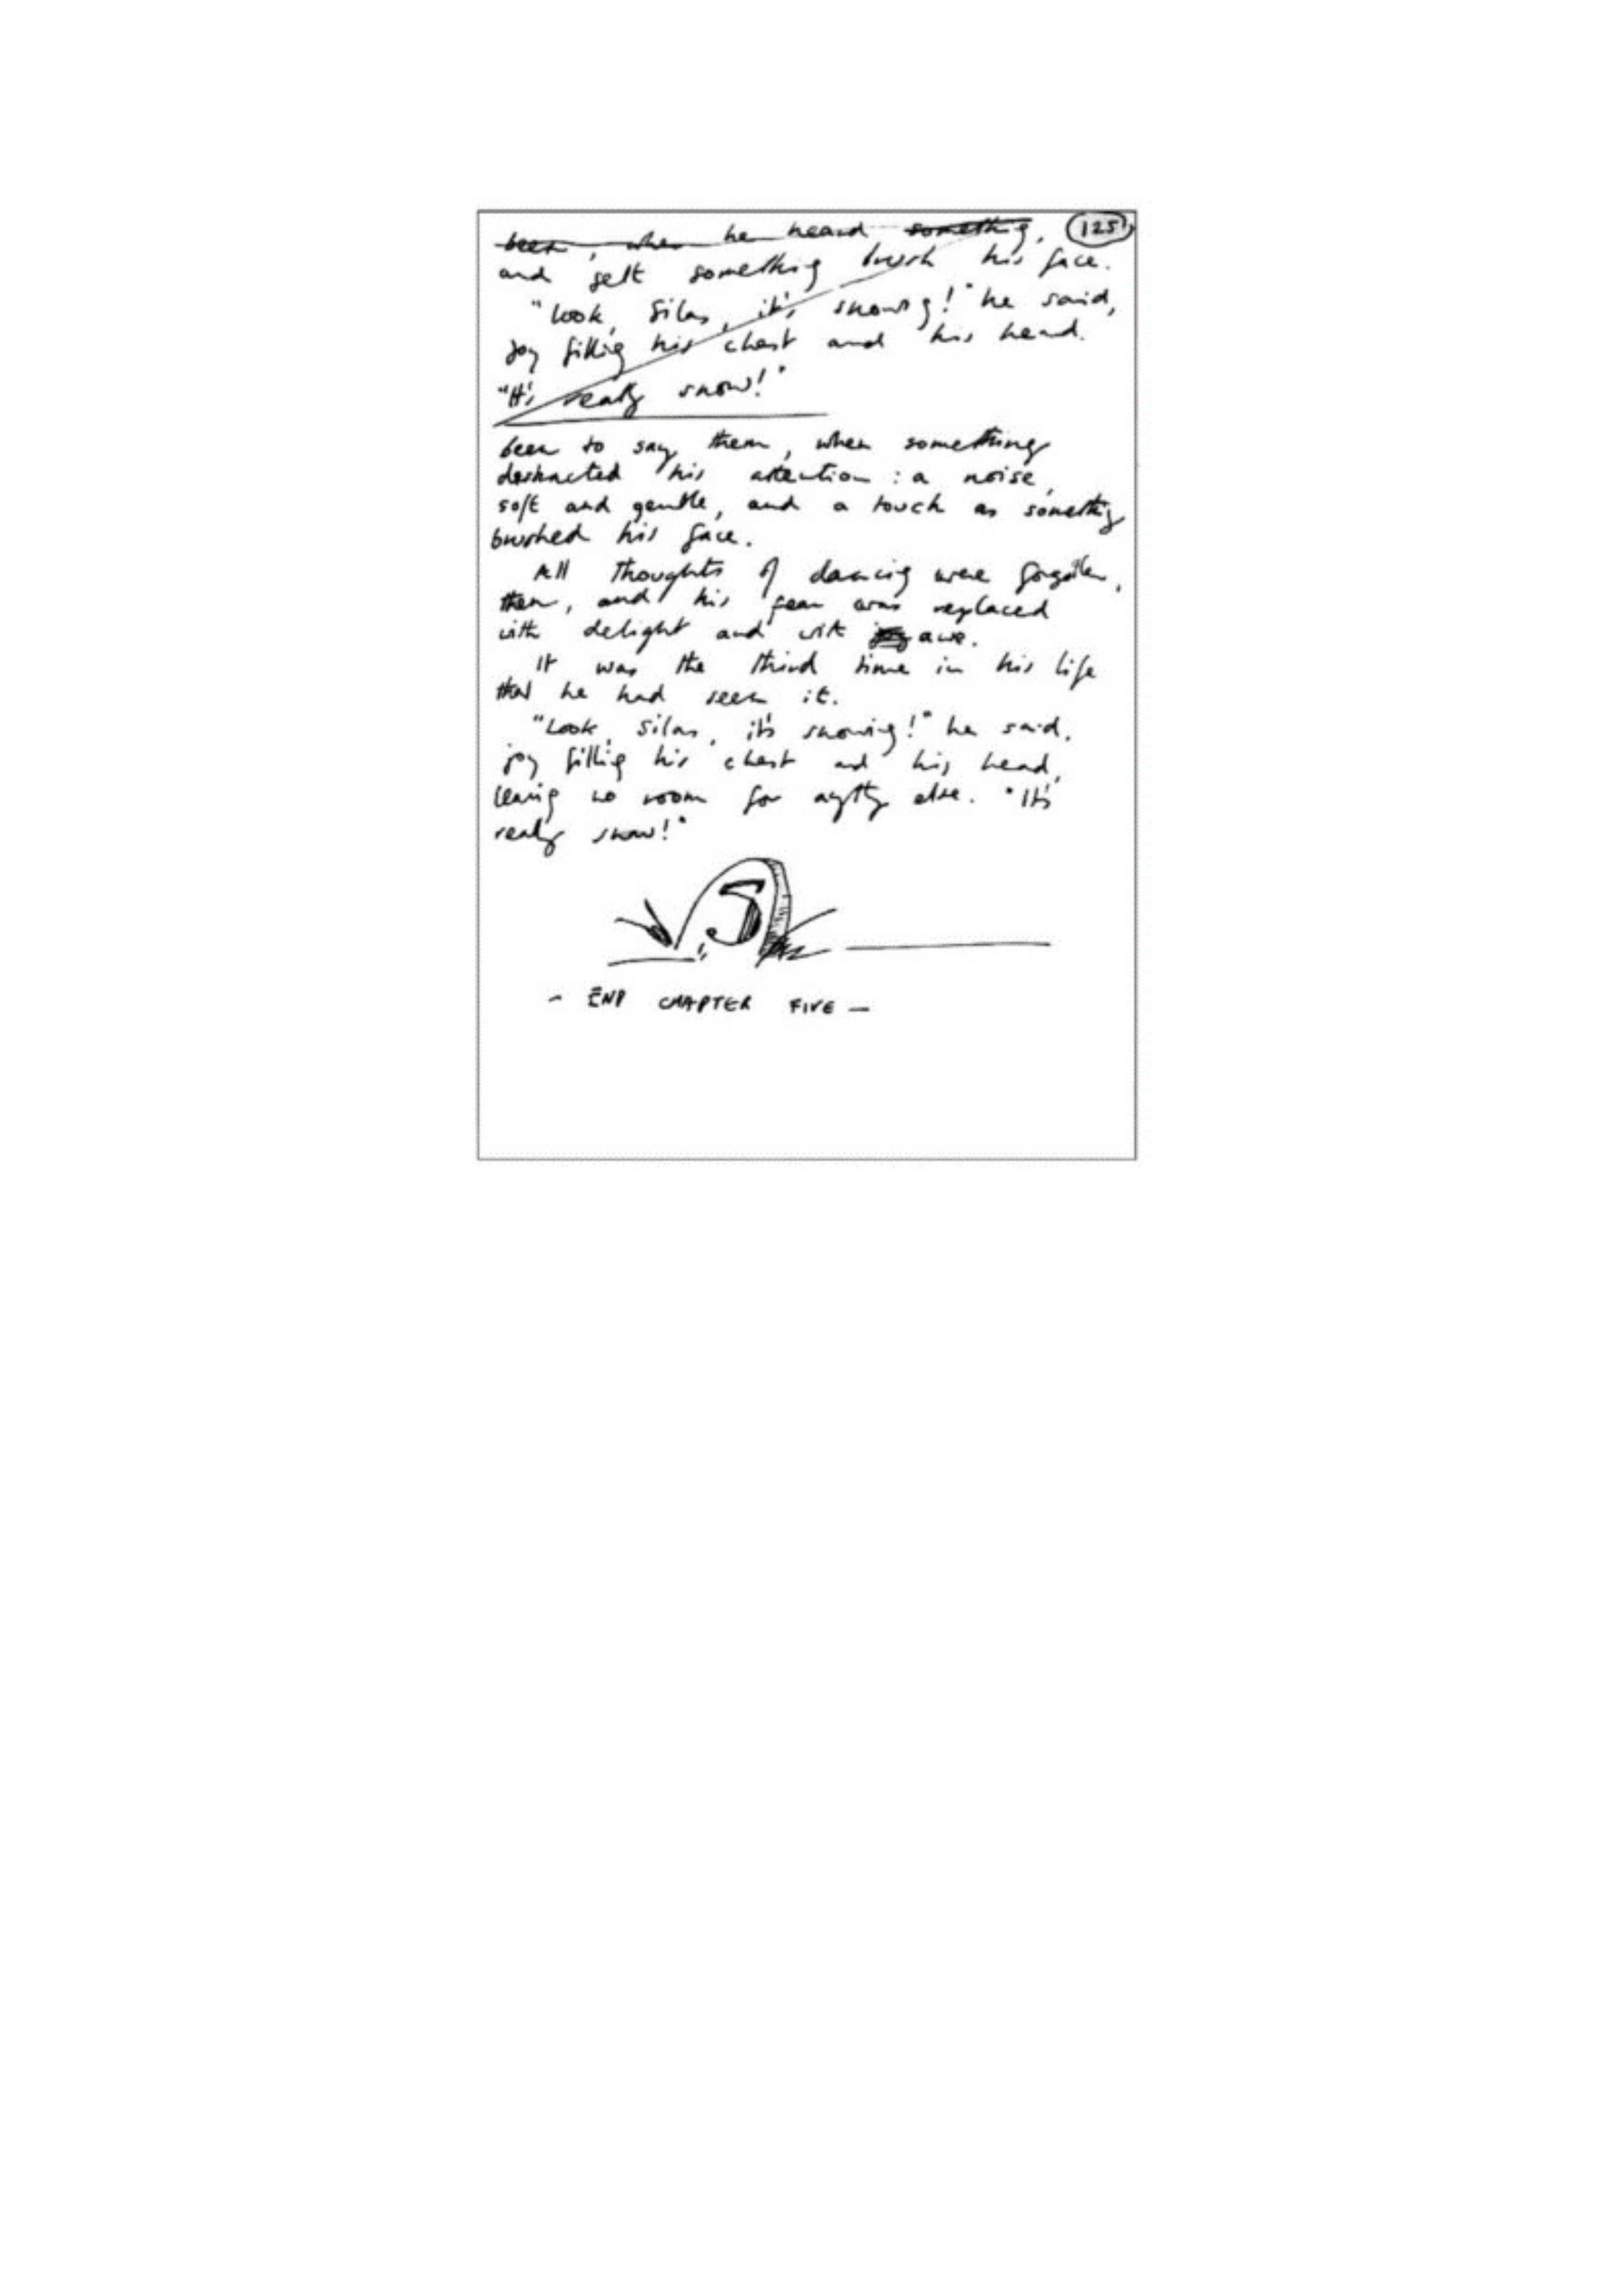 been, when he heard something, 125
and felt something brush his face.
"Look, Silas, it's snowing!" he said,
joy filling his chest and his head.
"It's really snow!"
been to say them, when something
destracted his attention : a noise,
soft and gentle, and a touch as something
brushed his face.
All thoughts of dancing were forgotten,
then, and his fear was replaced
with delight and with awe.
It was the third time in his life
that he had seen it.
"Look, Silas, it's snowing!" he said,
joy filling his chest and his head,
leaving no room for anything else. "It's
really snow!"
5
- END CHAPTER FIVE -